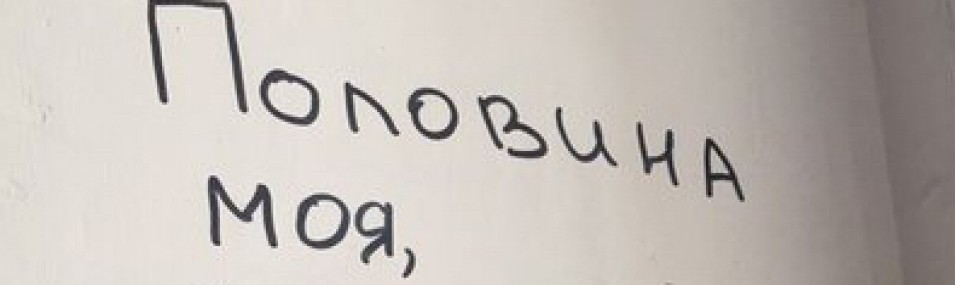 Половина
моя,